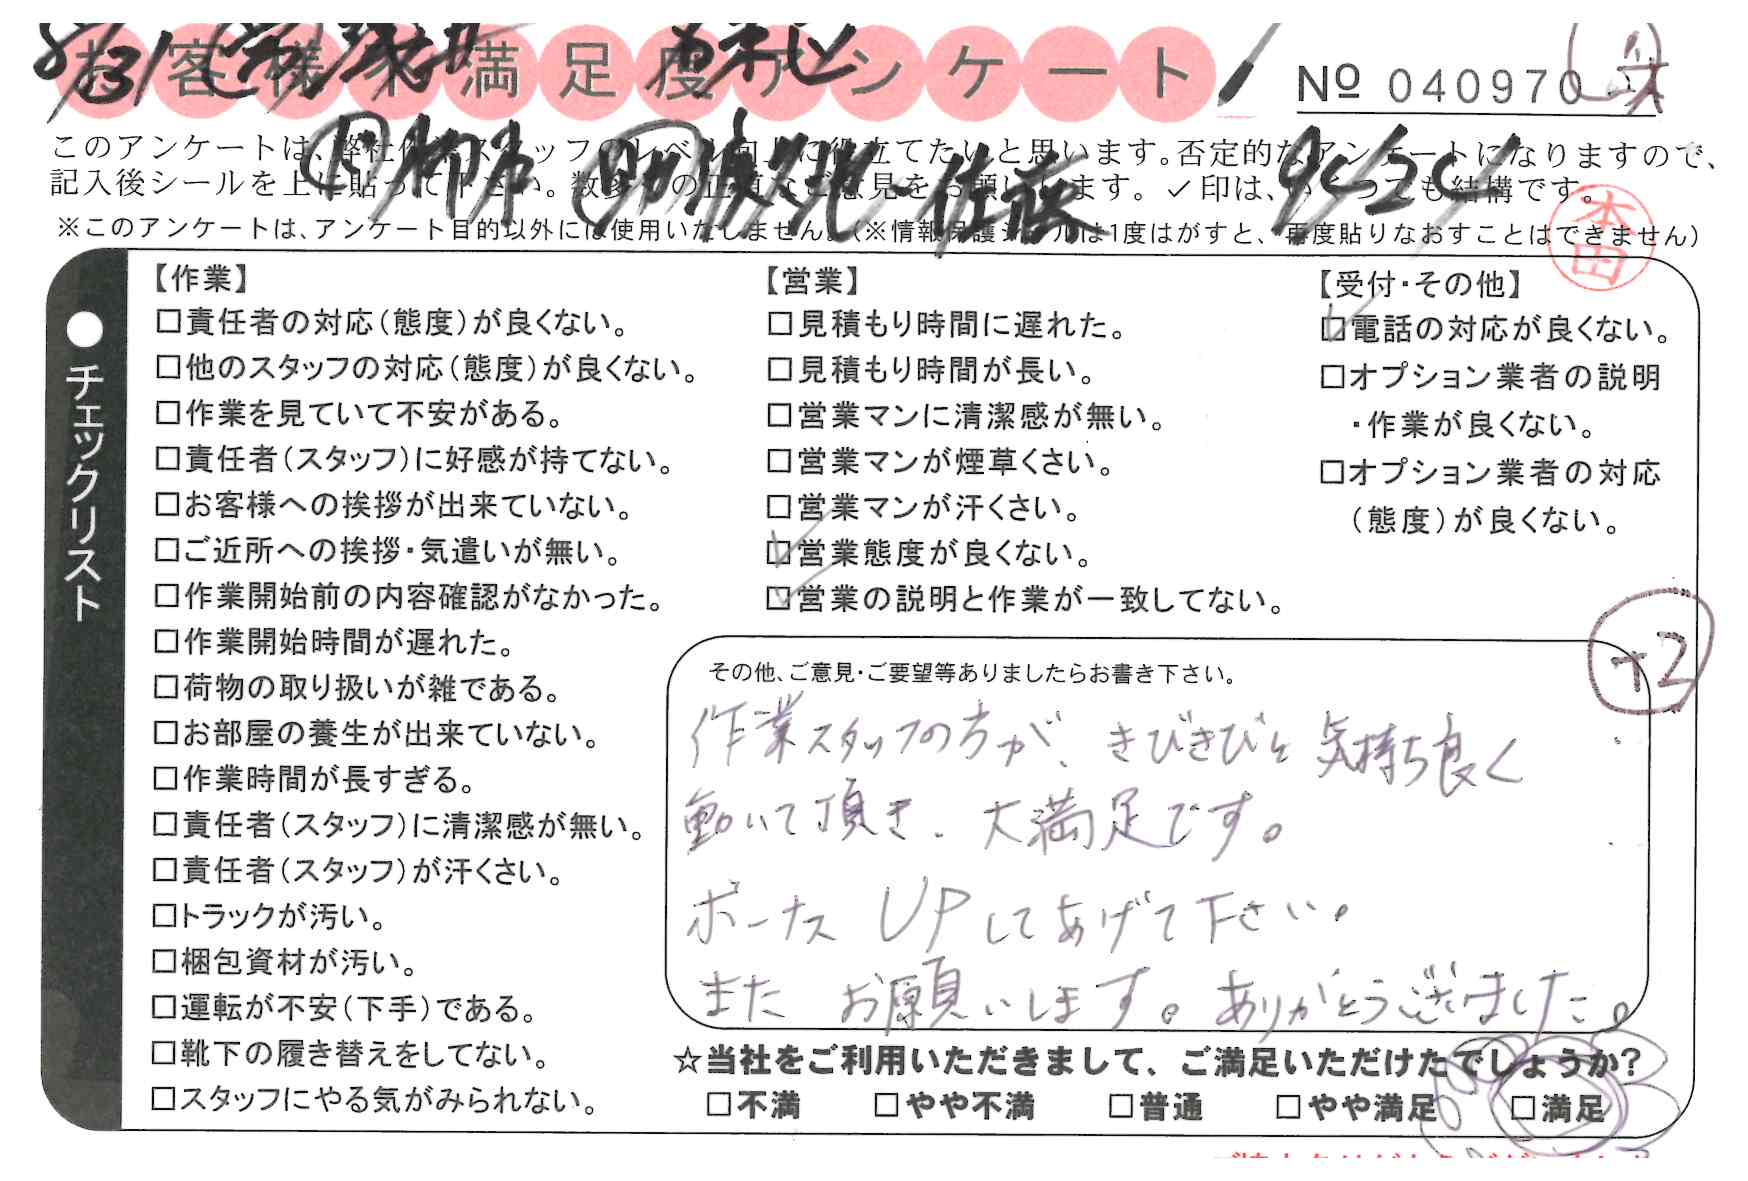 お客様満足度アンケート
№ 040970
このアンケートは、弊社作業スタッフのレベル向上に役立てたいと思います。否定的なアンケートになりますので、
記入後シールを上に貼って下さい。数多くの正直なご意見をお願いします。✓印は、いくつでも結構です。
※このアンケートは、アンケート目的以外には使用いたしません。(※情報保護シールは1度はがすと、再度貼りなおすことはできません)
本田
チェックリスト
【作業】
□責任者の対応(態度)が良くない。
□他のスタッフの対応(態度)が良くない。
□作業を見ていて不安がある。
□責任者(スタッフ)に好感が持てない。
□お客様への挨拶が出来ていない。
□ご近所への挨拶・気遣いが無い。
□作業開始前の内容確認がなかった。
□作業開始時間が遅れた。
□荷物の取り扱いが雑である。
□お部屋の養生が出来ていない。
□作業時間が長すぎる。
□責任者(スタッフ)に清潔感が無い。
□責任者(スタッフ)が汗くさい。
□トラックが汚い。
□梱包資材が汚い。
□運転が不安(下手)である。
□靴下の履き替えをしてない。
□スタッフにやる気がみられない。
【営業】
□見積もり時間に遅れた。
□見積もり時間が長い。
□営業マンに清潔感が無い。
□営業マンが煙草くさい。
□営業マンが汗くさい。
□営業態度が良くない。
□営業の説明と作業が一致してない。
【受付・その他】
□電話の対応が良くない。
□オプション業者の説明
・作業が良くない。
□オプション業者の対応
(態度)が良くない。
+2
その他、ご意見・ご要望等ありましたらお書き下さい。
作業スタッフの方が、きびきびと気持ち良く
動いて頂き、大満足です。
ボーナスUPしてあげて下さい。
また お願いします。ありがとうございました。
☆当社をご利用いただきまして、ご満足いただけたでしょうか?
□不満 □やや不満 □普通 □やや満足 □満足